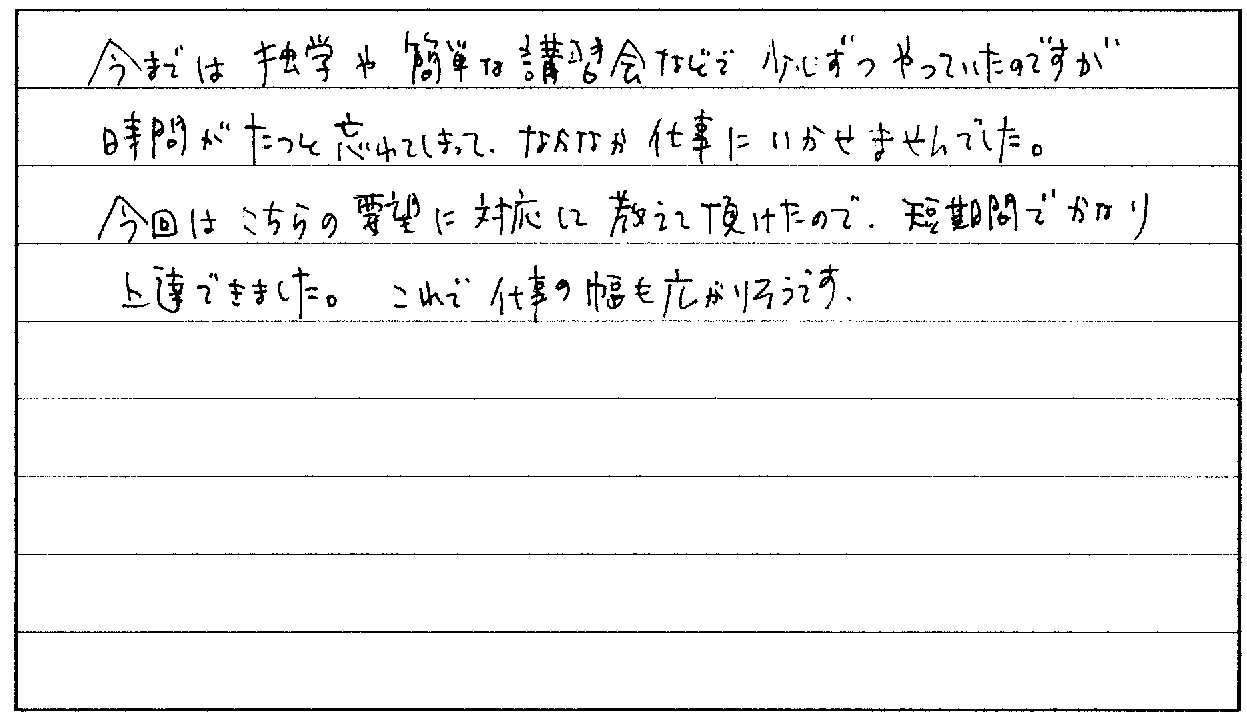 今までは独学や簡単な講習会などで少しずつやっていたのですが
時間がたつと忘れてしまって、なかなか仕事にいかせませんでした。
今回はこちらの要望に対応して教えて頂けたので、短期間でかなり
上達できました。これで仕事の幅も広がりそうです。